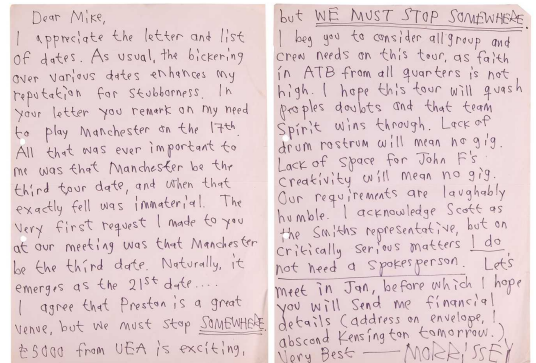 Dear Mike,
I appreciate the letter and list
of dates. As usual, the bickering
over various dates enhances my
reputation for stubborness. In
your letter you remark on my need
to play Manchester on the 17th.
All that was ever important to
me was that Manchester be the
third tour date, and when that
exactly fell was immaterial. The
very first request I made to you
at our meeting was that Manchester
be the third date. Naturally, it
emerges as the 21st date....
I agree that Preston is a great
venue, but we must stop SOMEWHERE.
£5000 from UEA is exciting,
but WE MUST STOP SOMEWHERE.
I beg you to consider all group and
crew needs on this tour, as faith
in ATB from all quarters is not
high. I hope this tour will quash
peoples doubts and that team
Spirit wins through. Lack of
drum rostrum will mean no gig.
Lack of space for John F's
Creativity will mean no gig.
Our requirements are laughably
humble. I acknowledge Scott as
the Smiths representative, but on
critically serious matters I do
not need a spokesperson. Let's
meet in Jan, before which I hope
you will send me financial
details (address on envelope, I
abscond Kensington tomorrow.)
Very Best — MORRISSEY